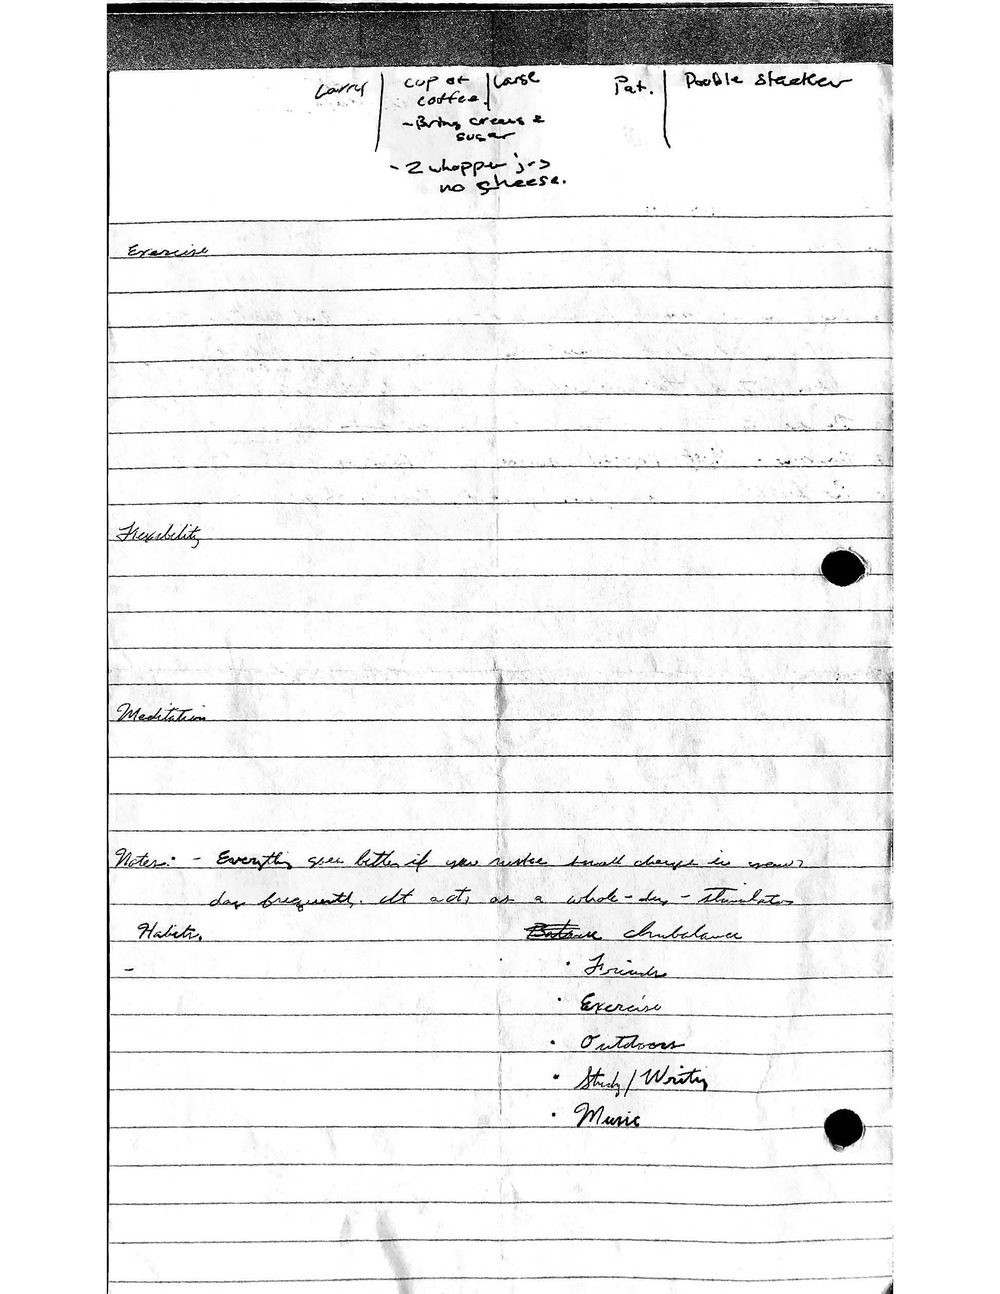 Larry | cup of | Large
coffee.
- Bring creams &
sugar
- 2 whopper jr->
no cheese.
Pat. | Double stacker
Exercise
Flexibility
Meditation
Notes: - Everything goes better if you make small change in your
day frequently. It acts as a whole-day-stimulator
Habits.
-
Balance Imbalance
· Friends
· Exercise
· Outdoors
· Study/Writing
· Music